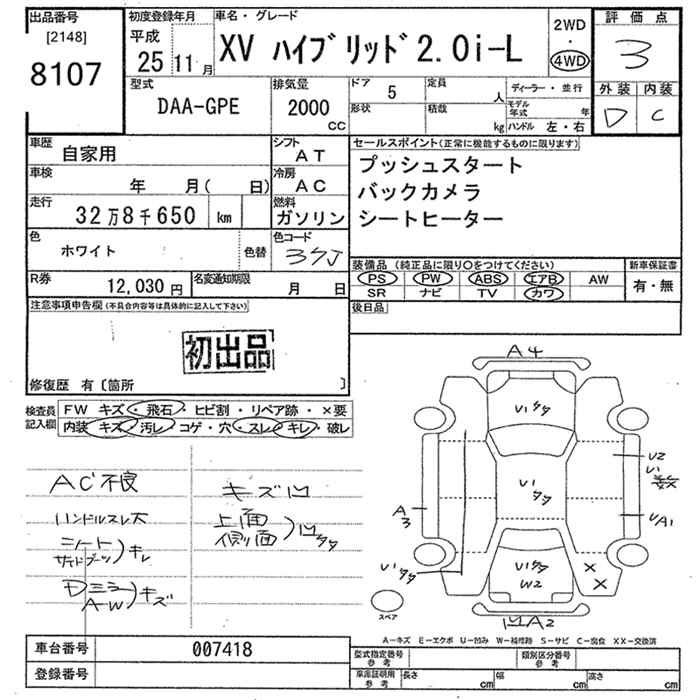 出品番号 初度登録年月 車名・グレード 2WD・4WD 評価点
[2148]
8107
平成 25 11月
XV ハイブリッド2.0i-L
3
型式 排気量 ドア 定員 ディーラー・並行 外装 内装
DAA-GPE 2000 CC 5 人
形状 積載 kg モデル年式 年
ハンドル 左・右
D C
車歴 自家用 シフト AT
セールスポイント(正常に機能するものに限ります)
プッシュスタート
バックカメラ
シートヒーター
車検 年 月( 日) 冷房 AC
走行 32万8千650 km 燃料 ガソリン
色 ホワイト 色替 色コード 37J
装備品(純正品に限り○をつけてください) 新車保証書
PS PW ABS エアB AW 有・無
SR ナビ TV カワ
R券 12,030円 名変通知期限 月 日
後日品
注意事項申告欄(不具合内容等は具体的に記入して下さい)
初出品
修復歴 有〔箇所 〕
検査員記入欄
FW キズ・飛石・ヒビ割・リペア跡・×要
内装 キズ・汚レ・コゲ・穴・スレ・キレ・破レ
AC不良
ハンドルスレ大
シート
サイドブーツ)キレ
Dミラー
AW)キズ
キズ凹
上面
側面)凹タタ
A4
U1タタ
U2
U1
数
U1
タタ
A3
UA1
U1タタ
U1タタ
W2
×
×
凹A2
スペア
A-キズ E-エクボ U-凹み W-補修跡 S-サビ C-腐食 XX-交換済
車台番号 007418
登録番号
型式指定番号 参考 類別区分番号 参考
車庫証明用 参考 長さ cm 幅 cm 高さ cm